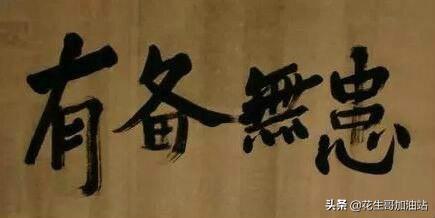 有备無患
头条 @花生哥加油站